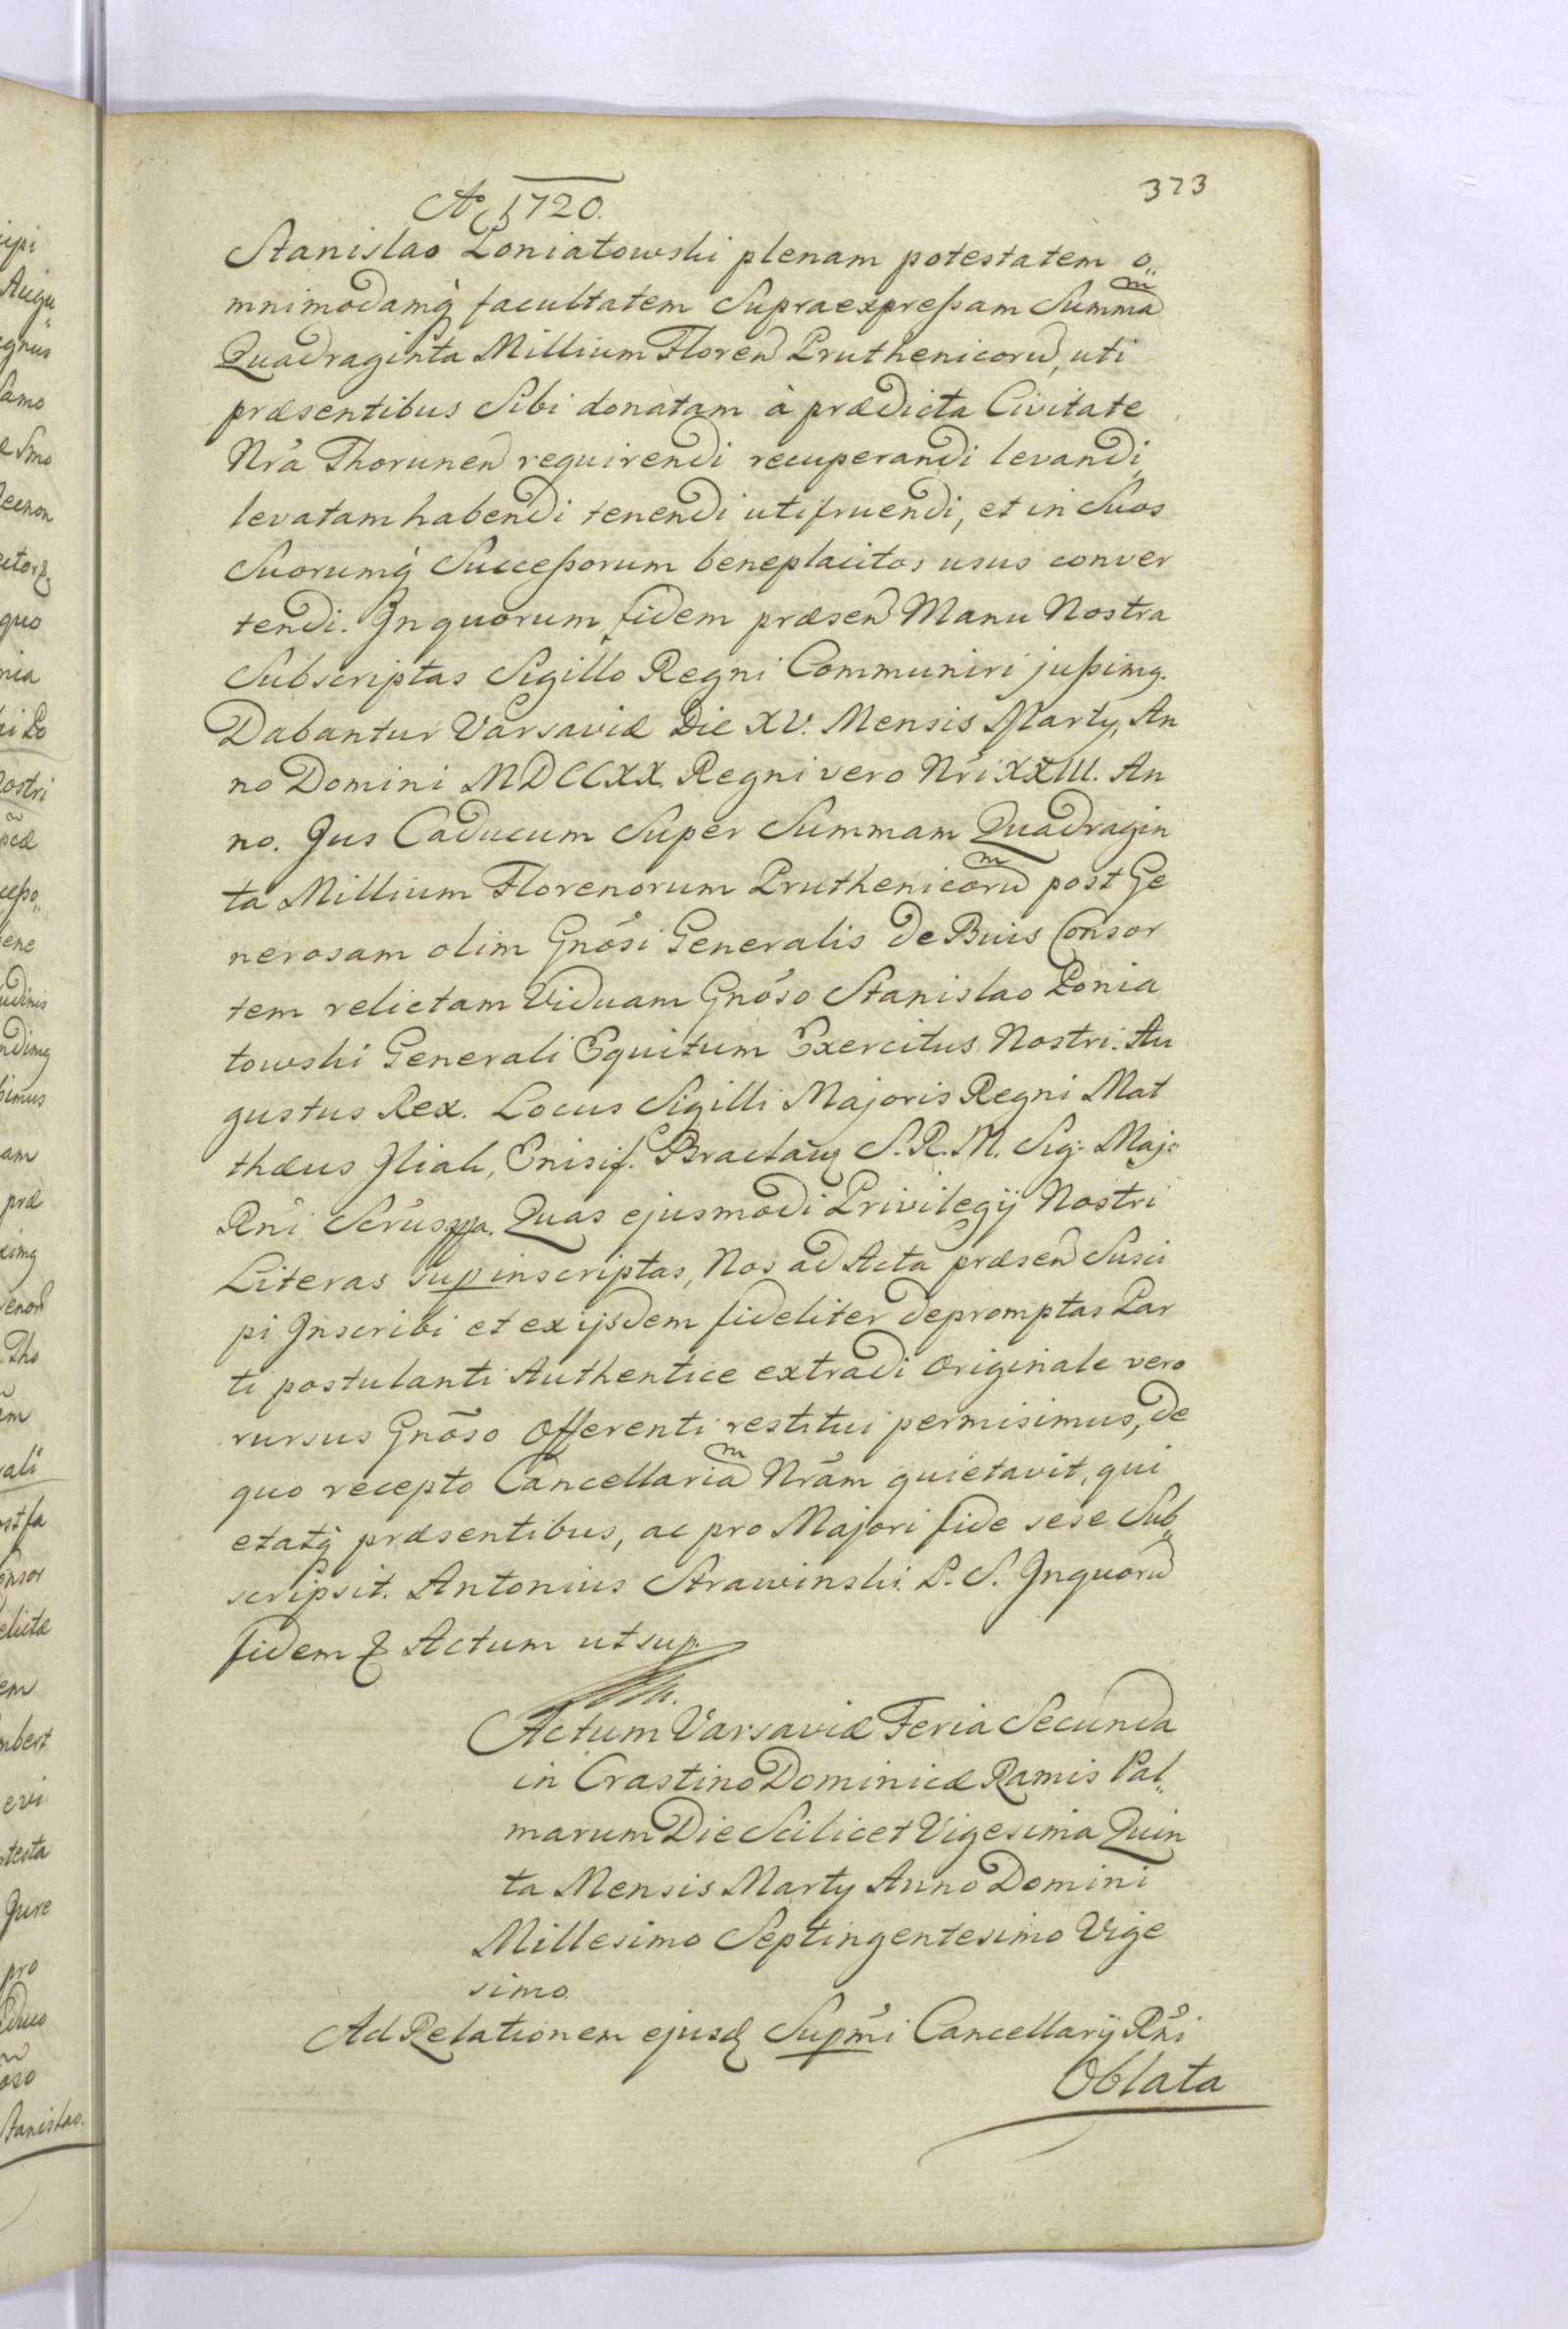 Ao 1720.
373
Stanislao Poniatowski plenam potestatem o„
mnimodamq́ facultatem Supraexpreßam Summam
Quadraginta Millium Floren Pruthenicoru, uti
præsentibus Sibi donatam à prædicta Civitate
Nrá Thorunen requirendi recuperandi levandi,
levatam habendi tenendi utifruendi, et in Suos
Suorumq́ Succeßorum beneplacitos usus conver
tendi. In quorum fidem præsen Manu Nostra
Subscriptas Sigillo Regni Communiri jußimq.
Dabantur Varsaviæ Die XV. Mensis Marty, An
no Domini MDCCXX. Regni vero Nrí XXIII. An
no. Jus Caducum Super Summam Quadragin
ta Millium Florenorum Pruthenicorum post Ge
nerosam olim Gnósi Generalis de Buis Consor
tem relictam Viduam Gnóso Stanislao Ponia
towski Generali Equitum Exercitus Nostri. Au
gustus Rex. Locus Sigilli Majoris Regni Mat
thæus Jliah, S. R. M. Sig: Maj:
Rni Quas ejusmodi Privilegÿ Nostri
Literas sup inscriptas, Nos ad Acta præsen Susci
pi Inscribi et ex ijsdem fideliter depromptas Par
ti postulanti Authentice extradi Originale vero
rursus Gnōso Offerenti restitui permisimus, de
quo recepto Cancellariam Nrám quietavit, qui
etatq́ præsentibus, ac pro Majori fide sese Sub„
scripsit. Antonius Strawinski. P. S. In quoru
fidem & Actum ut sup.
Actum Varsaviæ Feria Secunda
in Crastino Dominicæ Ramis Pal„
marum Die Scilicet Vigesima Quin
ta Mensis Marty Anno Domini
Millesimo Septingentesimo Vige
simo.
Ad Relationem ejusd Supmí Cancellarÿ Rní
Oblata